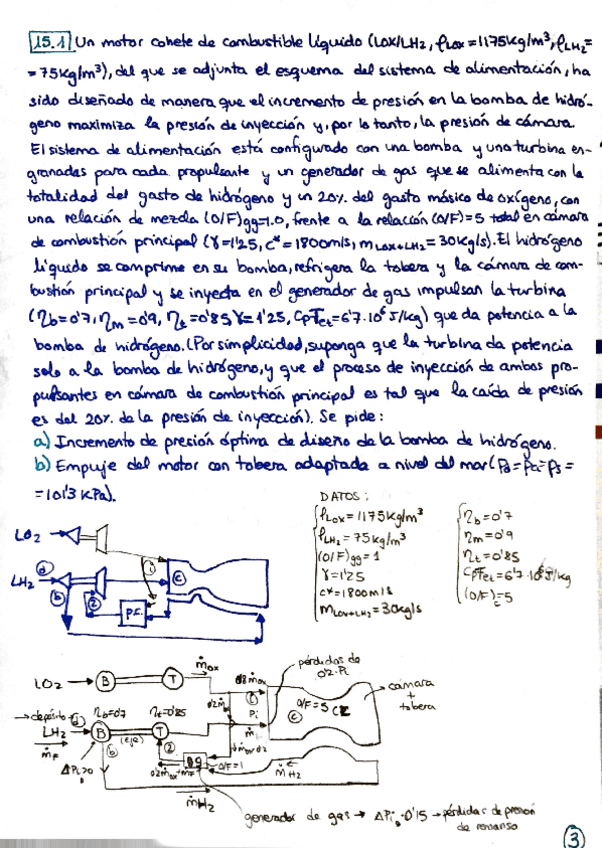 15.1 Un motor cohete de combustible líquido (LOX/LH2, ρLOX = 1175 kg/m³, ρLH2 =
= 75 kg/m³), del que se adjunta el esquema del sistema de alimentación, ha
sido diseñado de manera que el incremento de presión en la bomba de hidró-
geno maximiza la presión de inyección y, por lo tanto, la presión de cámara.
El sistema de alimentación está configurado con una bomba y una turbina en-
granadas para cada propulsante y un generador de gas que se alimenta con la
totalidad del gasto de hidrógeno y un 20% del gasto másico de oxígeno, con
una relación de mezcla (O/F)gg=1.0, frente a la relación (O/F)=5 total en cámara
de combustión principal (γ=1'25, c*=1800m/s, ṁLOX+LH2=30kg/s). El hidrógeno
líquido se comprime en su bomba, refrigera la tobera y la cámara de com-
bustión principal y se inyecta en el generador de gas impulsan la turbina
(ηb=0'7, ηm=0'9, ηt=0'85, γ=1'25, CpTet=6'7·10⁶ J/kg) que da potencia a la
bomba de hidrógeno. (Por simplicidad, suponga que la turbina da potencia
solo a la bomba de hidrógeno, y que el proceso de inyección de ambos pro-
pulsantes en cámara de combustión principal es tal que la caída de presión
es del 20% de la presión de inyección). Se pide:
a) Incremento de presión óptima de diseño de la bomba de hidrógeno.
b) Empuje del motor con tobera adaptada a nivel del mar (
= 101'3 KPa).
DATOS:
ρLOX = 1175 kg/m³
ρLH2 = 75 kg/m³
(O/F)gg = 1
γ = 1'25
c* = 1800 m/s
ṁLOX+LH2 = 30 kg/s
ηb = 0'7
ηm = 0'9
ηt = 0'85
CpTet = 6'7·10⁶ J/kg
(O/F)c = 5
LO2
LH2 a
b
2
i
c
P.C.
LO2 B T ṁox
0'8 ṁox
pérdidas de
0'2·Pi
cámara
+
tobera
depósito
LH2
ṁF
ηb=0'7 ηt=0'85
B (eje) T
Pi
O/F=5
c
ΔPb>0
GG
O/F=1
0'2ṁox+ṁF
ṁH2
ṁH2
generador de gas → 0'15 → pérdidas de presión
de remanso
3